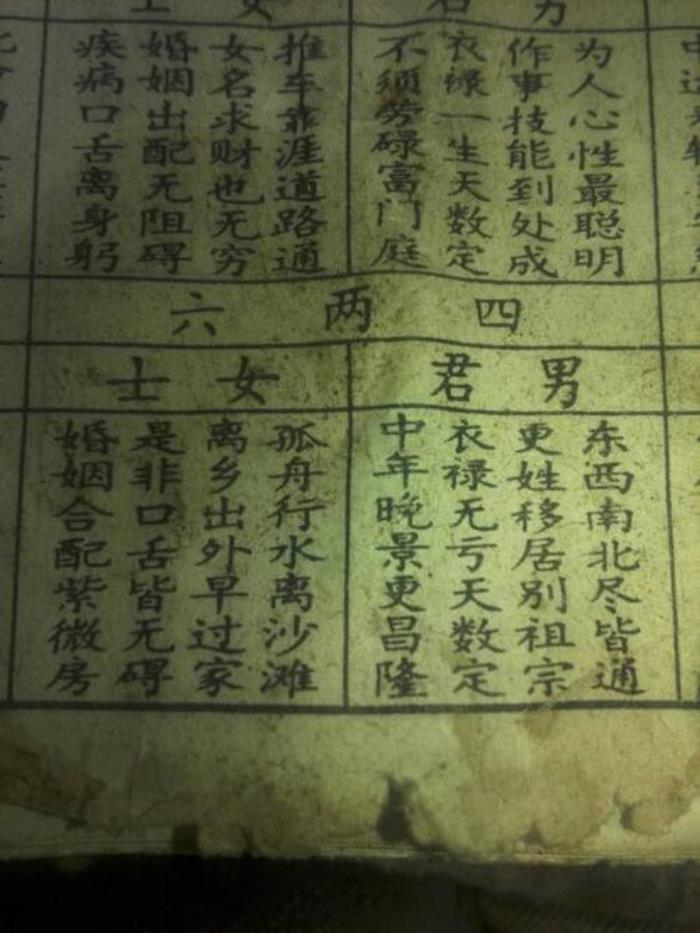 男君
女士
为人心性最聪明
作事技能到处成
衣禄一生天数定
不须劳碌富门庭
推车靠涯道路通
女名求财也无穷
婚姻出配无阻碍
疾病口舌离身躬
四两六
男君
东西南北尽皆通
更姓移居别祖宗
衣禄无亏天数定
中年晚景更昌隆
女士
孤舟行水离沙滩
离乡出外早过家
是非口舌皆无碍
婚姻合配紫微房